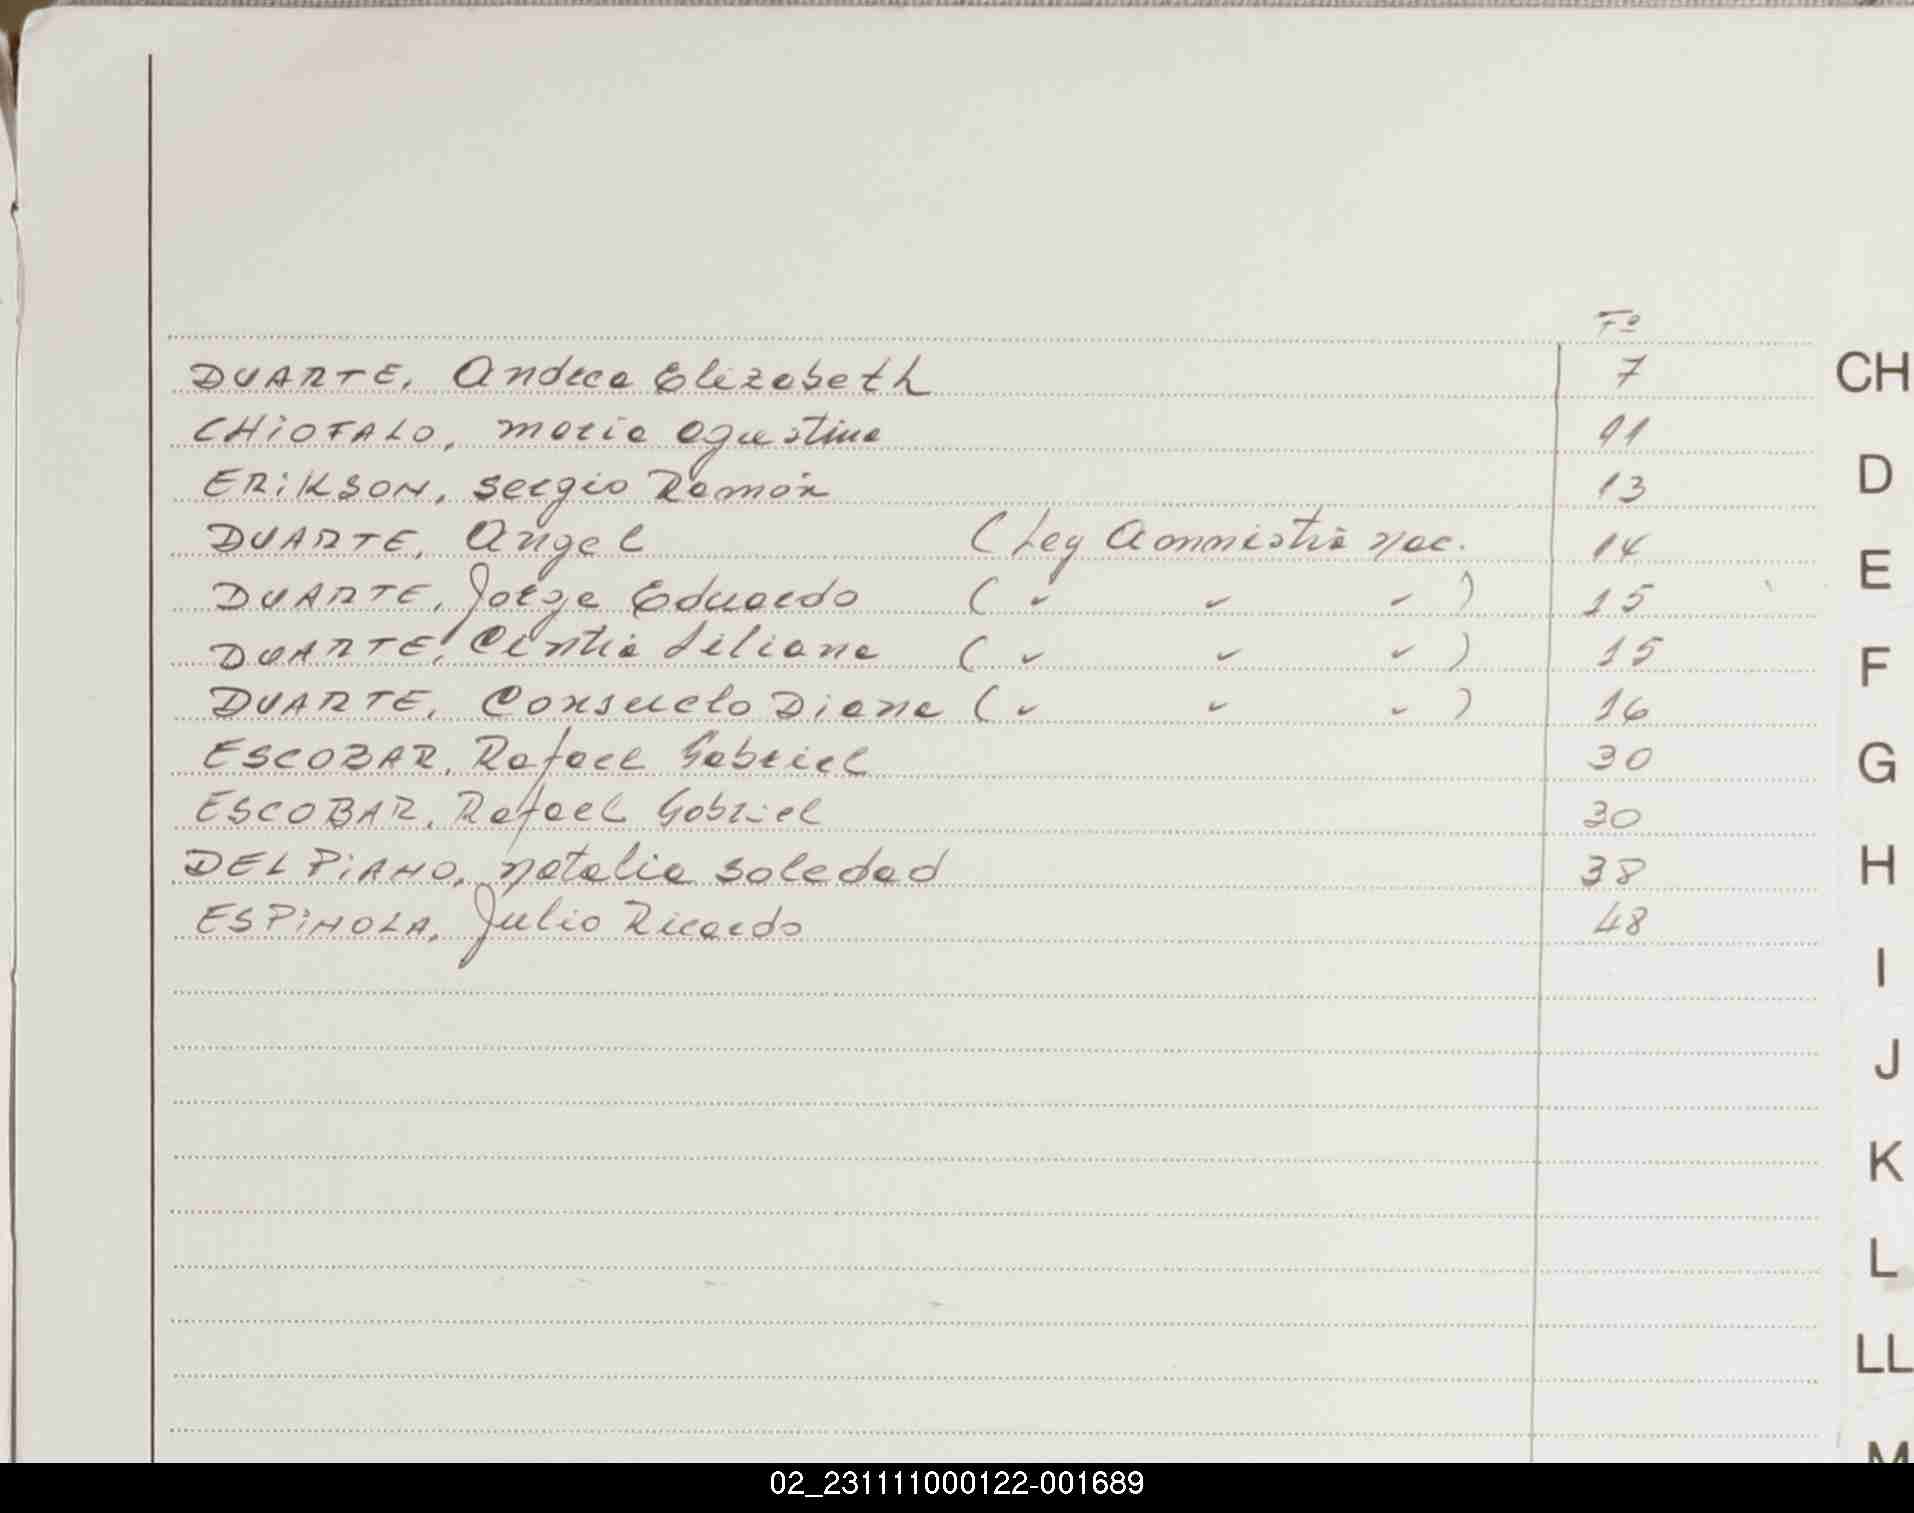 Fº
DUARTE, Andrea Elizabeth 7 CH
CHIOFALO, Maria Agustina 11
ERIKSON, Sergio Ramón 13 D
DUARTE, Angel (Ley Amnistia Nac. 14 E
DUARTE, Jorge Eduardo ( " " " ) 15
DUARTE, Cintia Liliana ( " " " ) 15 F
DUARTE, Consuelo Diana ( " " " ) 16
ESCOBAR, Rafael Gabriel 30 G
ESCOBAR, Rafael Gabriel 30
DEL PIANO, Natalia Soledad 38 H
ESPINOLA, Julio Ricardo 48
I
J
K
L
LL
M
02_231111000122-001689